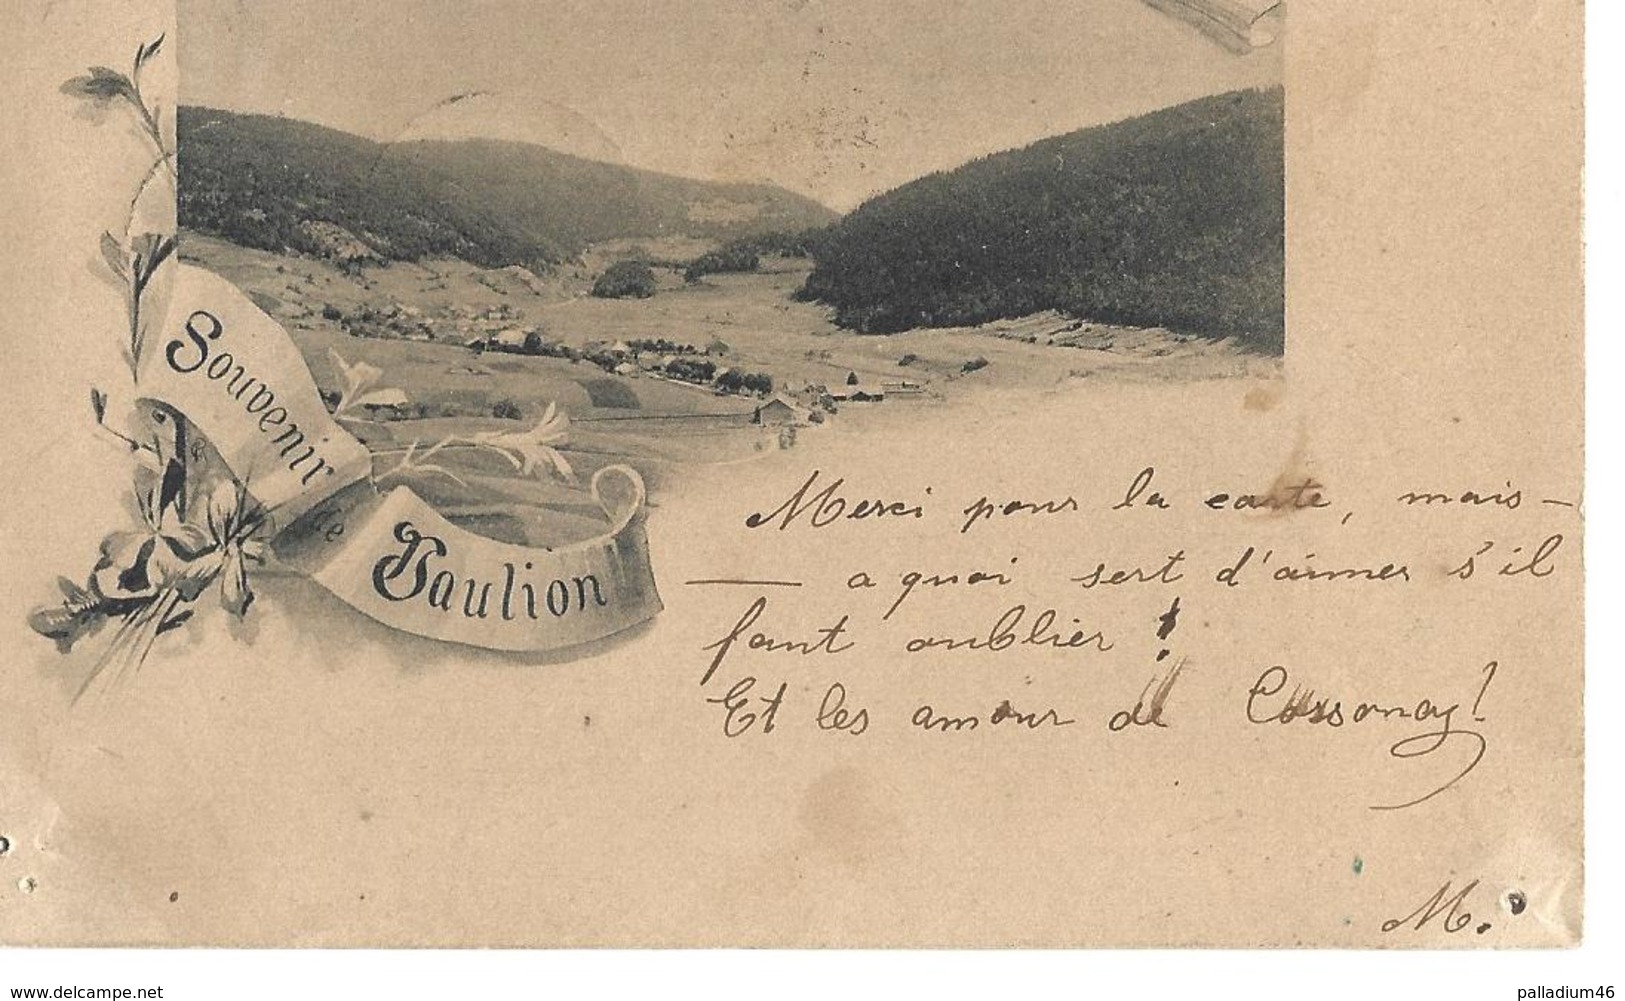 Souvenir
de
Vaulion
Merci pour la carte, mais -
— a quoi sert d'aimer s'il
faut oublier !
Et les amour de Cossonay!
M.
www.delcampe.net
palladium46